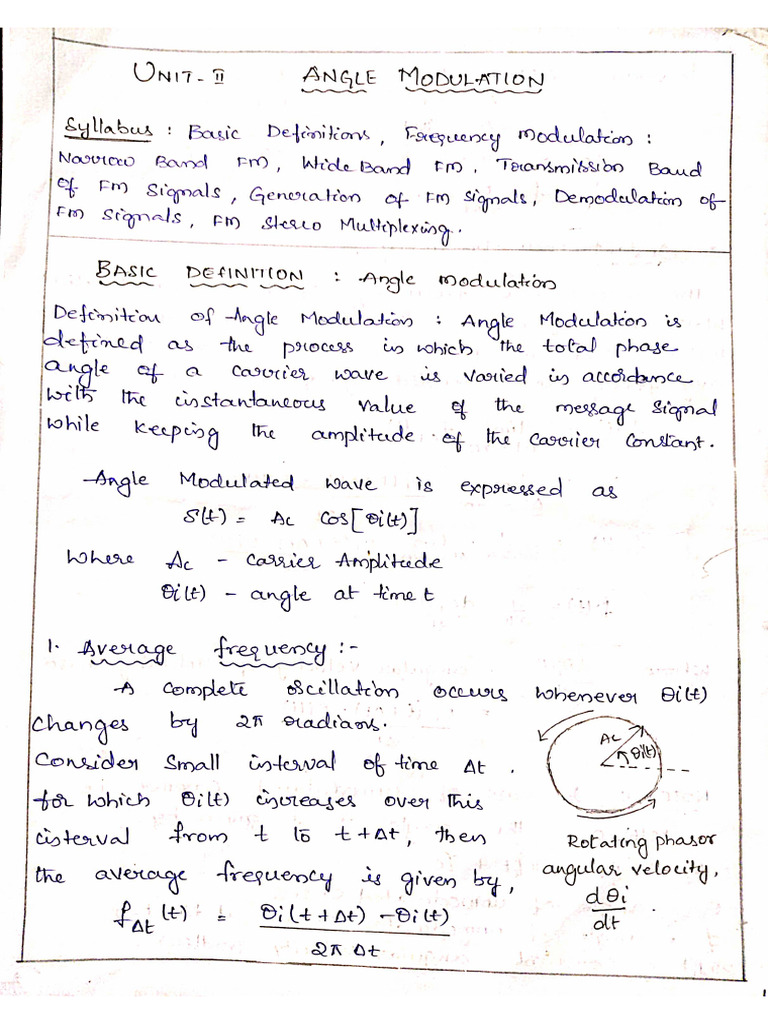 UNIT-II ANGLE MODULATION
Syllabus : Basic Definitions, Frequency modulation :
Narrow Band FM, Wide Band FM, Transmission Band
of FM Signals, Generation of FM signals, Demodulation of
FM Signals, FM Stereo Multiplexing.
BASIC DEFINITION : Angle modulation
Definition of Angle Modulation : Angle Modulation is
defined as the process in which the total phase
angle of a carrier wave is varied in accordance
with the instantaneous value of the message signal
while keeping the amplitude of the carrier constant.
Angle Modulated wave is expressed as
S(t) = Ac Cos[θi(t)]
where Ac - carrier Amplitude
θi(t) - angle at time t
1. Average frequency :-
A complete oscillation occurs whenever θi(t)
changes by 2π radians.
Consider small interval of time Δt .
for which θi(t) increases over this
interval from t to t+Δt, then
the average frequency is given by,
fΔt (t) = θi(t+Δt) - θi(t)
2π Δt
Ac
θi(t)
Rotating phasor
angular velocity,
dθi
dt